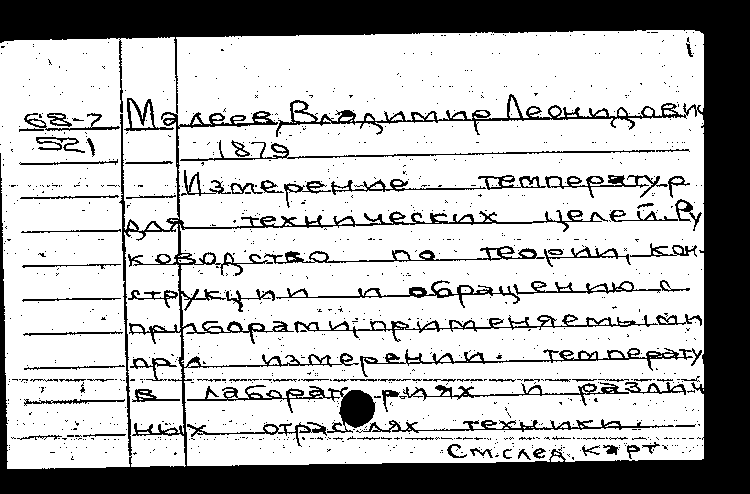 1
68-7 Малеев, Владимир Леонидович
521 1879
Измерение температур
для технических целей. Ру
ководство по теории, кон-
струкции и обращению с
приборами, применяемыми
при измерении температу
в лабораториях и различ
ных отраслях техники.
См. след. карт.